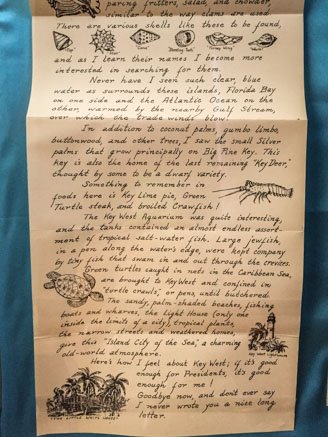 paring fritters, salad, and chowder,
similar to the way clams are used.
There are various shells like these to be found,
and as I learn their names I become more
interested in searching for them.
Never have I seen such clear, blue
water as surrounds these islands, Florida Bay
on one side and the Atlantic Ocean on the
other, warmed by the nearby Gulf Stream,
over which the trade winds blow.
In addition to coconut palms, gumbo limbo,
buttonwood, and other trees, I saw the small Silver
palms that grow principally on Big Pine Key. This
key is also the home of the last remaining "Key Deer,"
thought by some to be a dwarf variety.
Something to remember in
foods here is Key Lime pie, Green
Turtle steak, and broiled Crawfish!
The Key West Aquarium was quite interesting,
and the tanks contained an almost endless assort-
ment of tropical salt-water fish. Large jewfish,
in a pen along the water's edge, were kept company
by tiny fish that swam in and out through the crevices.
Green turtles caught in nets in the Caribbean Sea,
are brought to Key West and confined in
"turtle crawls," or pens, until butchered.
The sandy, palm-shaded beaches, fishing
boats and wharves, the Light House (only one
inside the limits of a city), tropical plants,
the narrow streets and weathered homes,
give this "Island City of the Sea," a charming
old-world atmosphere.
Key West Lighthouse
Here's how I feel about Key West; if it's good
enough for Presidents, it's good
enough for me!
Goodbye now, and don't ever say
I never wrote you a nice long
letter.
"The Little White House"